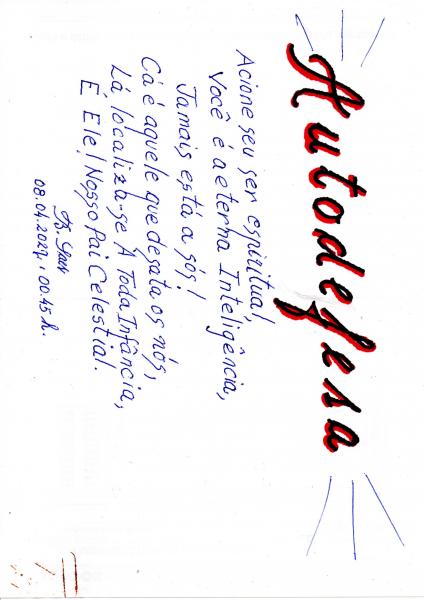 Autodefesa
Acione seu ser espiritual,
Você é a eterna Inteligência,
Jamais está a sós!
Cá é aquele que desata os nós,
Lá localiza-se A Toda Infância,
É, Ele! Nosso Pai Celestial.
08.04.2024, 00.45 h.